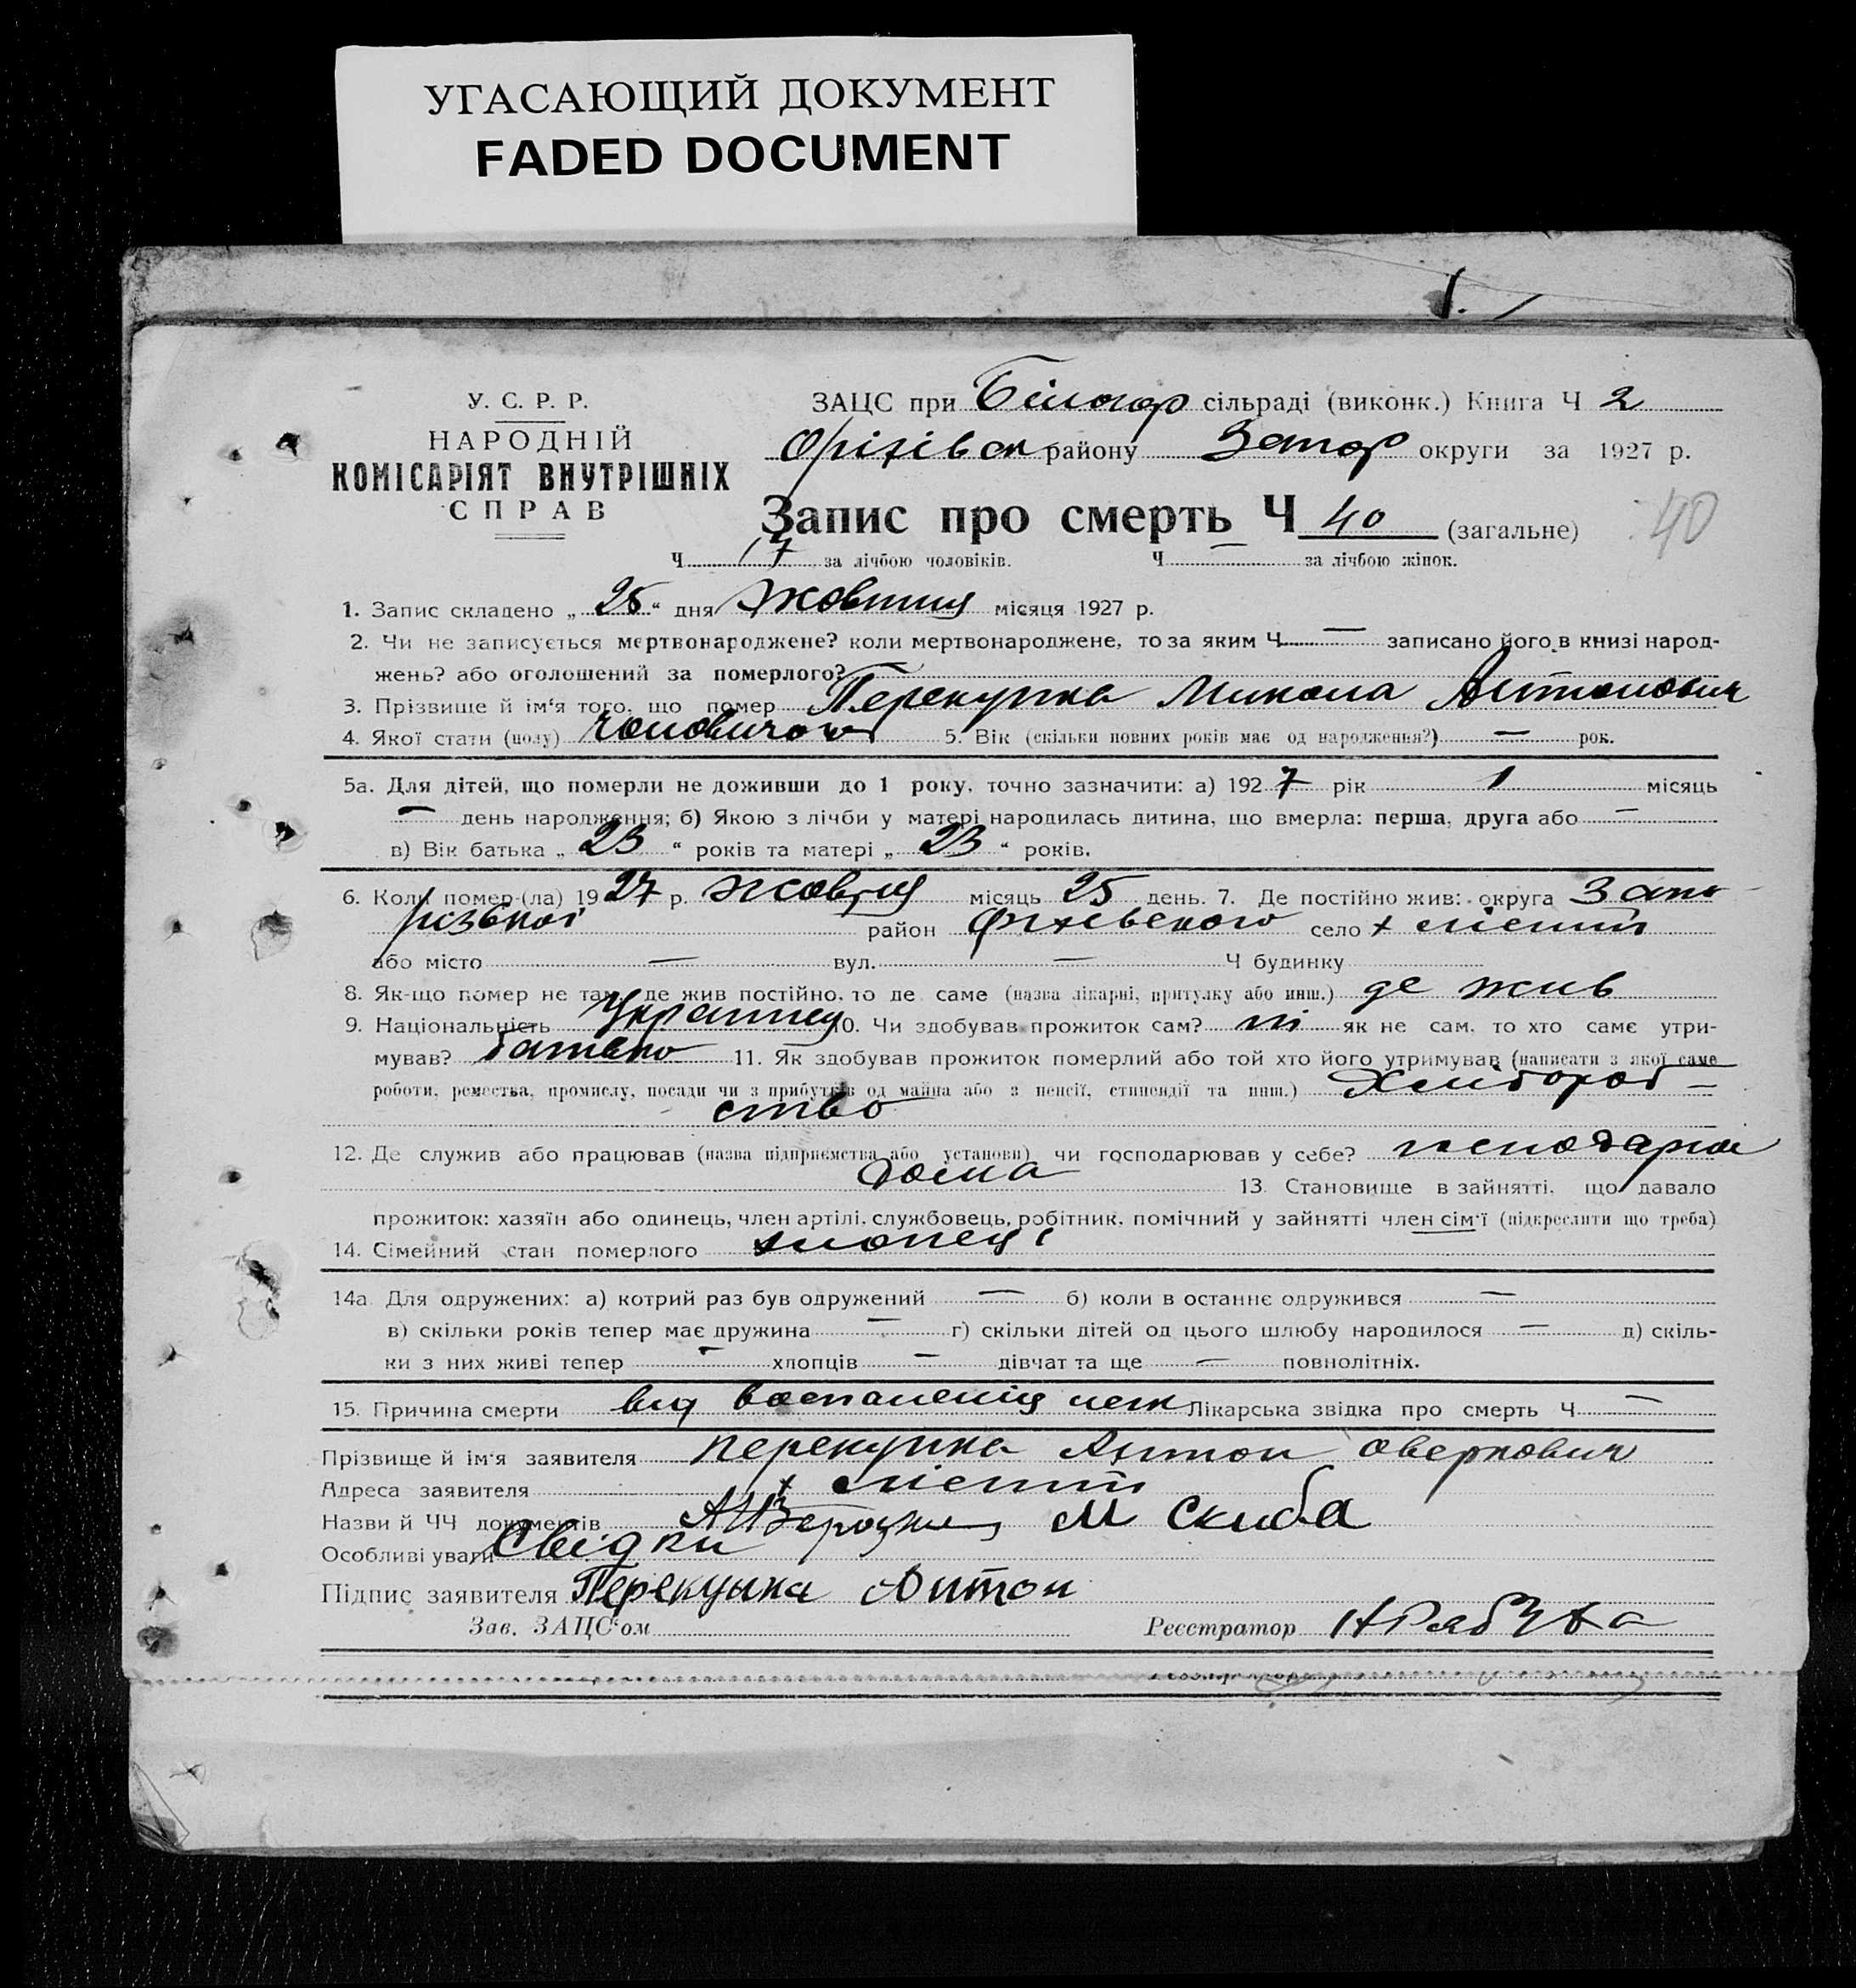 УГАСАЮЩИЙ ДОКУМЕНТ
FADED DOCUMENT
1.
У. С. Р. Р.
НАРОДНІЙ
КОМІСАРІЯТ ВНУТРІШНІХ
СПРАВ
ЗАЦС при Білогор сільраді (виконк.) Книга Ч 2
Оріхівск району Запор округи за 1927 р.
Запис про смерть Ч 40 (загальне) 40
Ч 17 за лічбою чоловіків. Ч — за лічбою жінок.
1. Запис складено „ 25 “ дня Жовтня місяця 1927 р.
2. Чи не записується мертвонароджене? коли мертвонароджене, то за яким Ч — записано його в книзі народ-
жень? або оголошений за померлого?
3. Прізвище й ім'я того, що помер Перекупка Микола Антонович
4. Якої стати (полу) 5. Вік (скільки повних років має од народження?) — рок.
5а. Для дітей, що померли не доживши до 1 року, точно зазначити: а) 192 7 рік 1 місяць
— день народження; б) Якою з лічби у матері народилась дитина, що вмерла: перша, друга або —
в) Вік батька „ 23 “ років та матері „ 23 “ років.
6. Коли помер (ла) 19 27 р. жовтня місяць 25 день. 7. Де постійно жив: округа Запо
різької район Оріхівського село х
або місто — вул. — Ч будинку
8. Як-що помер не там, де жив постійно, то де саме (назва лікарні, притулку або инш.) де жив
9. Національність Українец 10. Чи здобував прожиток сам? ні як не сам, то хто саме утри-
мував? батько 11. Як здобував прожиток померлий або той хто його утримував (написати з якої саме
роботи, ремества, промислу, посади чи з прибутків од майна або з пенсії, стипендії та инш.) Хлібороб-
ство
12. Де служив або працював (назва підприємства або установи) чи господарював у себе?
дома 13. Становище в зайнятті, що давало
прожиток: хазяїн або одинець, член артілі, службовець, робітник, помічний у зайнятті член сім'ї (підкреслити що треба)
14. Сімейний стан померлого
14а Для одружених: а) котрий раз був одружений — б) коли в останнє одружився —
в) скільки років тепер має дружина — г) скільки дітей од цього шлюбу народилося — д) скіль-
ки з них живі тепер — хлопців — дівчат та ще — повнолітніх.
15. Причина смерти від воспаления легк Лікарська звідка про смерть Ч —
Прізвище й ім'я заявителя Перекупка Антон Оверкович
Адреса заявителя х
Назви й ЧЧ документів М Скиба
Особливі уваги Свідки
Підпис заявителя Перекупка Антон
Зав. ЗАЦС'ом Реєстратор